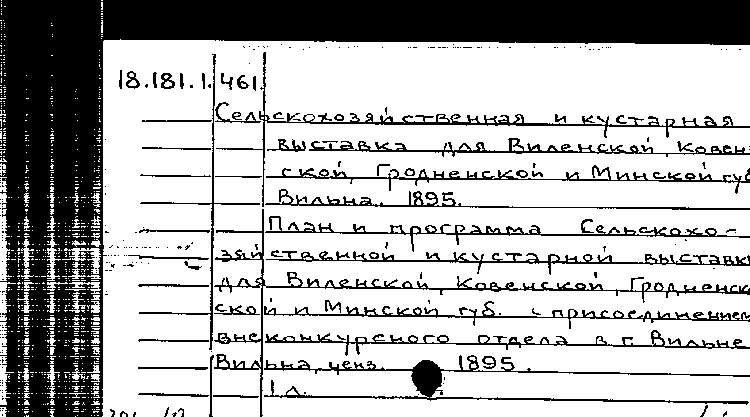 18.181.1.461.
Сельскохозяйственная и кустарная
выставка для Виленской, Ковен
ской, Гродненской и Минской губ
Вильна. 1895.
План и программа Сельскохо-
зяйственной и кустарной выставки
для Виленской, Ковенской, Гродненс
ской и Минской губ. с присоединением
внеконкурсного отдела в г. Вильне
Вильна, ценз. 1895.
1 л.